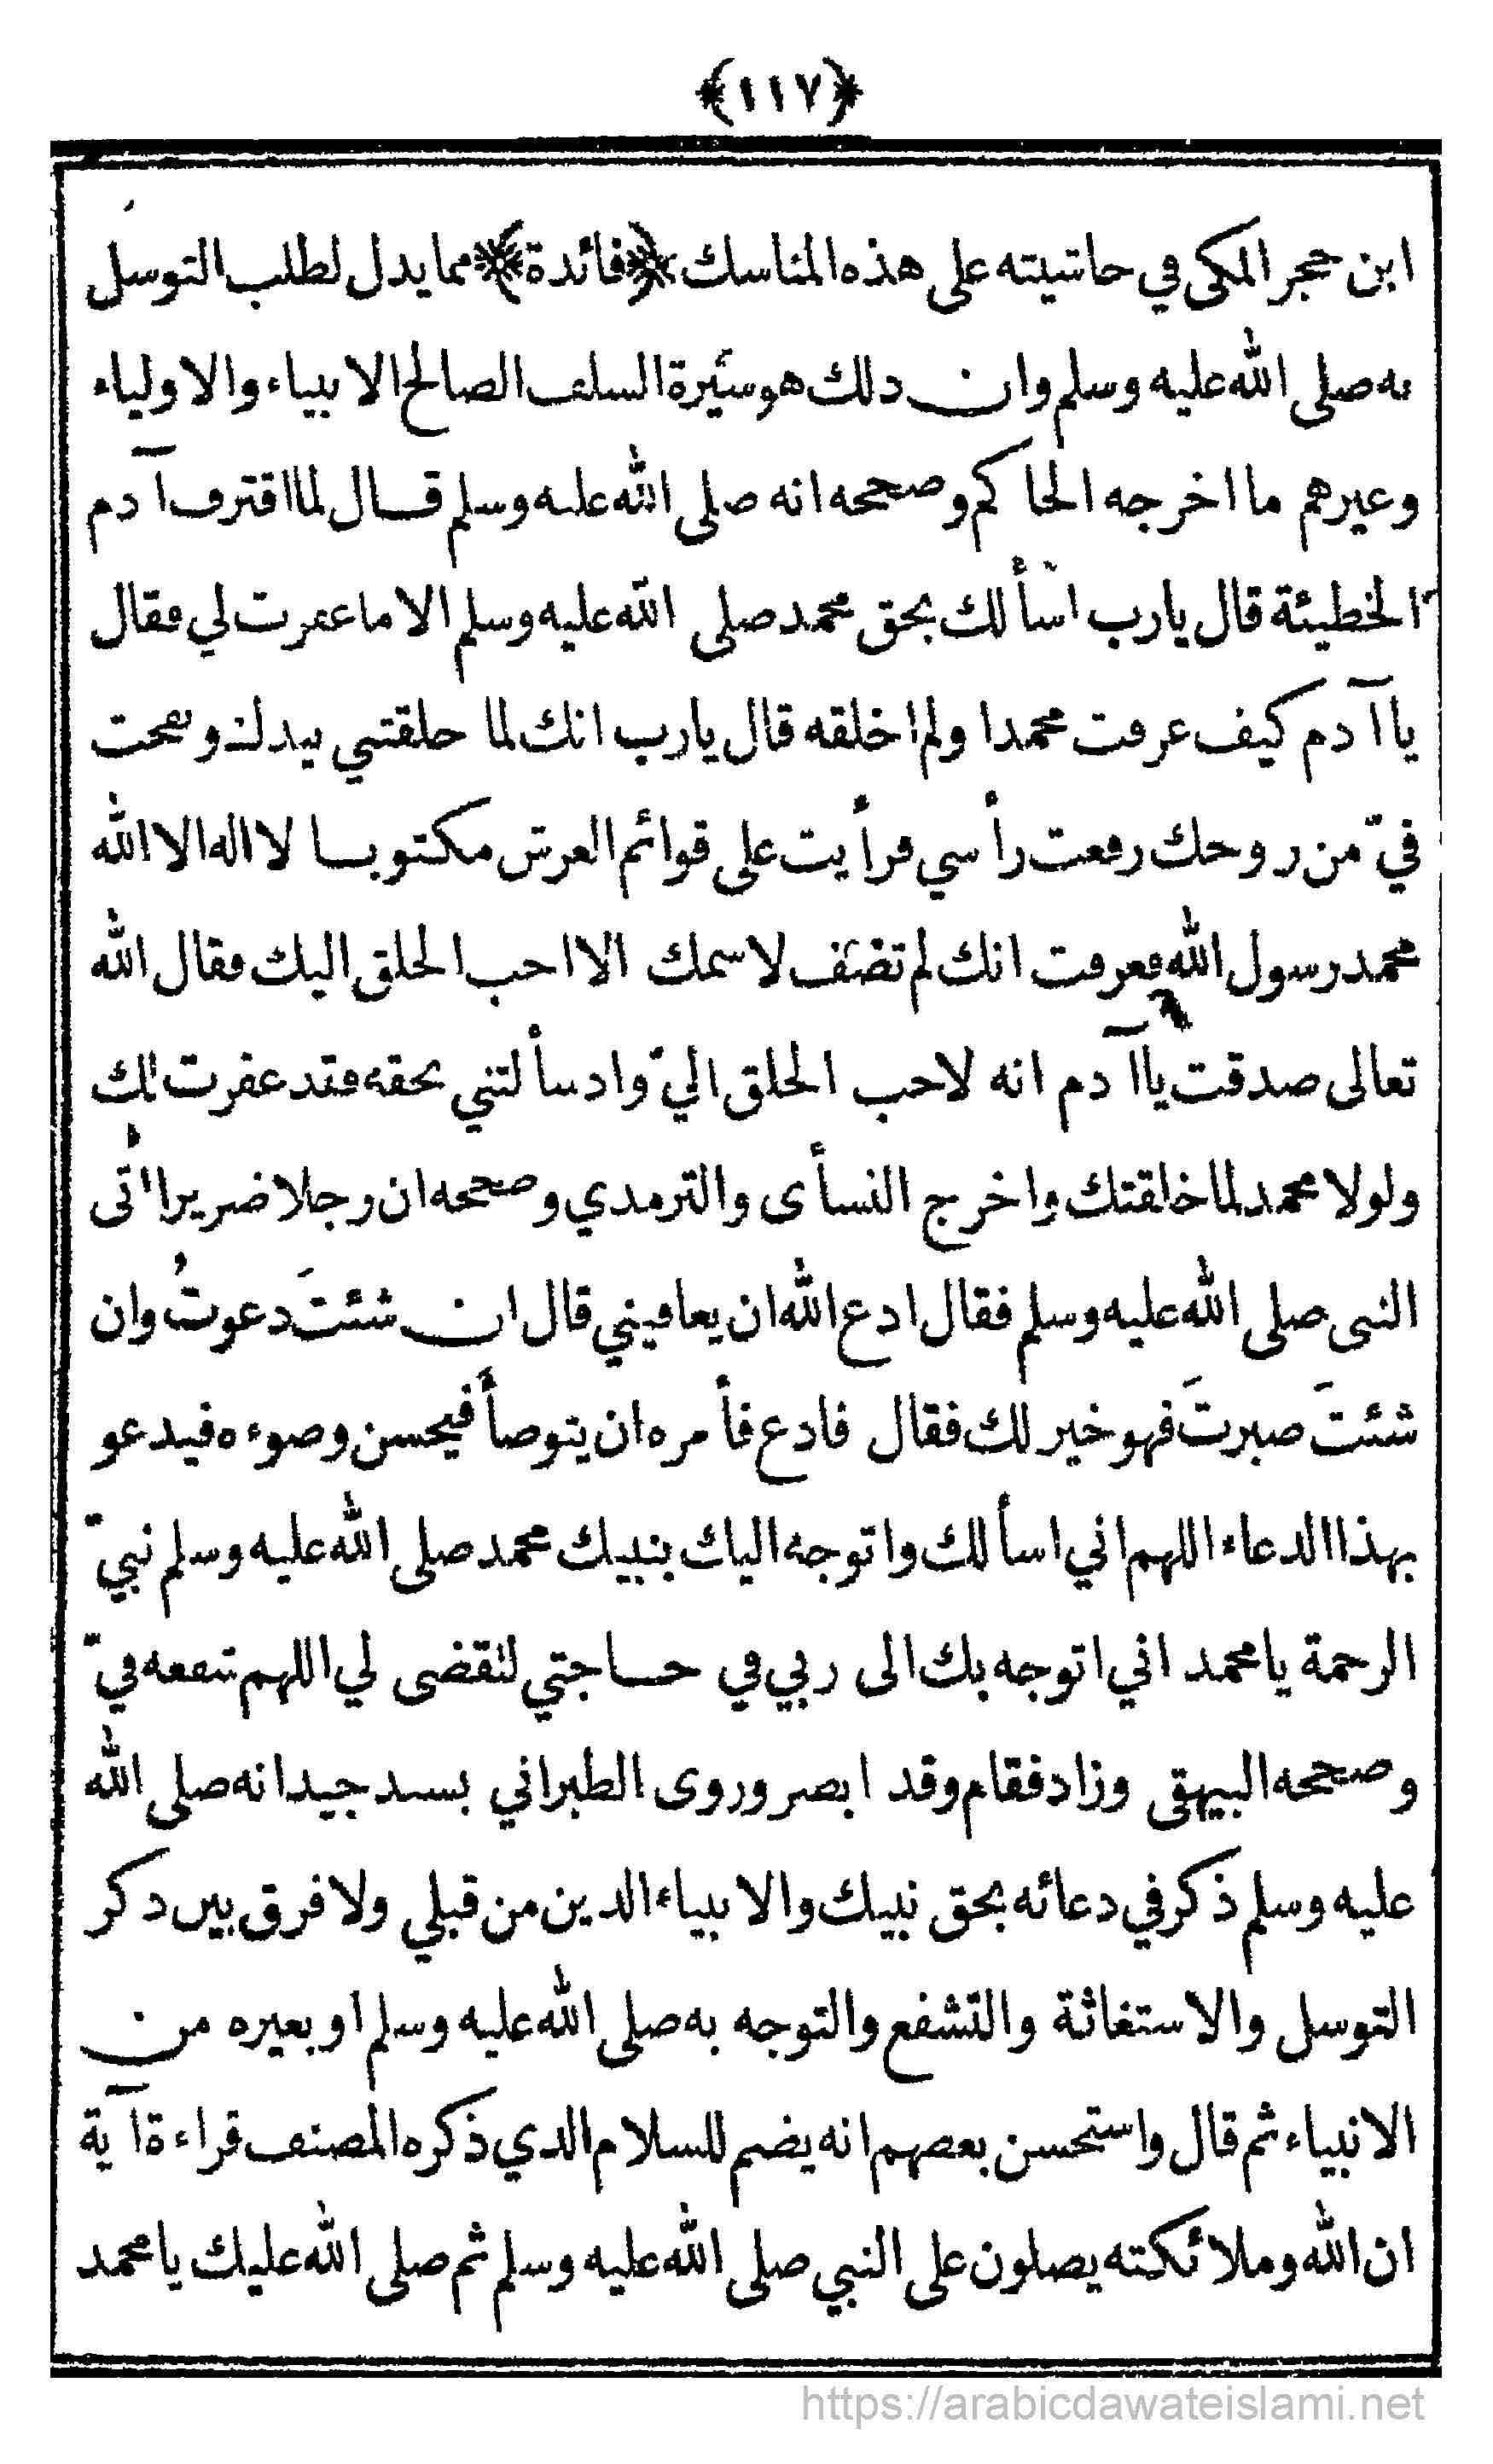 ﴿١١٧﴾
ابن حجر المكي في حاشيته على هذه المناسك ﴿فائدة﴾ مما يدل لطلب التوسل
به صلى الله عليه وسلم وان ذلك هو سيرة السلف الصالح الانبياء والاولياء
وغيرهم ما اخرجه الحاكم وصححه انه صلى الله عليه وسلم قال لما اقترف آدم
الخطيئة قال يارب اسألك بحق محمد صلى الله عليه وسلم الا ما غفرت لي فقال
يا آدم كيف عرفت محمدا ولم اخلقه قال يارب انك لما خلقتني بيدك ونفخت
فيّ من روحك رفعت رأسي فرأيت على قوائم العرش مكتوبا لا اله الا الله
محمد رسول الله فعرفت انك لم تضف لاسمك الا احب الخلق اليك فقال الله
تعالى صدقت يا آدم انه لاحب الخلق اليّ واذ سألتني بحقه فقد غفرت لك
ولولا محمد لما خلقتك واخرج النسأى والترمذي وصححه ان رجلا ضريرا اتى
النبي صلى الله عليه وسلم فقال ادع الله ان يعافيني قال ان شئتَ دعوتُ وان
شئتَ صبرتَ فهو خير لك فقال فادع فأمره ان يتوضأ فيحسن وضوءه فيدعو
بهذا الدعاء اللهم اني اسألك واتوجه اليك بنبيك محمد صلى الله عليه وسلم نبيّ
الرحمة يا محمد اني اتوجه بك الى ربي في حاجتي لتقضى لي اللهم شفعه فيّ
وصححه البيهقي وزاد فقام وقد ابصر وروى الطبراني بسند جيد انه صلى الله
عليه وسلم ذكر في دعائه بحق نبيك والانبياء الذين من قبلي ولا فرق بين ذكر
التوسل والاستغاثة والتشفع والتوجه به صلى الله عليه وسلم او بغيره من
الانبياء ثم قال واستحسن بعضهم انه يضم للسلام الذي ذكره المصنف قراءة آية
ان الله وملائكته يصلون على النبي صلى الله عليه وسلم ثم صلى الله عليك يا محمد
https://arabicdawateislami.net